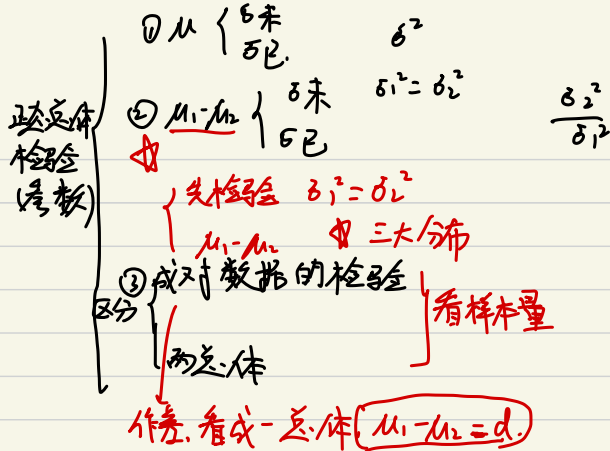 ① μ { σ未 σ²
σ已.
正态总体
检验
(参数)
② μ₁-μ₂ { σ未 σ₁²=σ₂² σ₂²/σ₁²
σ已
☆
{ 先检验 σ₁²=σ₂²
μ₁-μ₂ ☆ 三大分布
③ 成对数据的检验
区分 看样本量
两总体
作差,看成一总体 μ₁-μ₂=d.